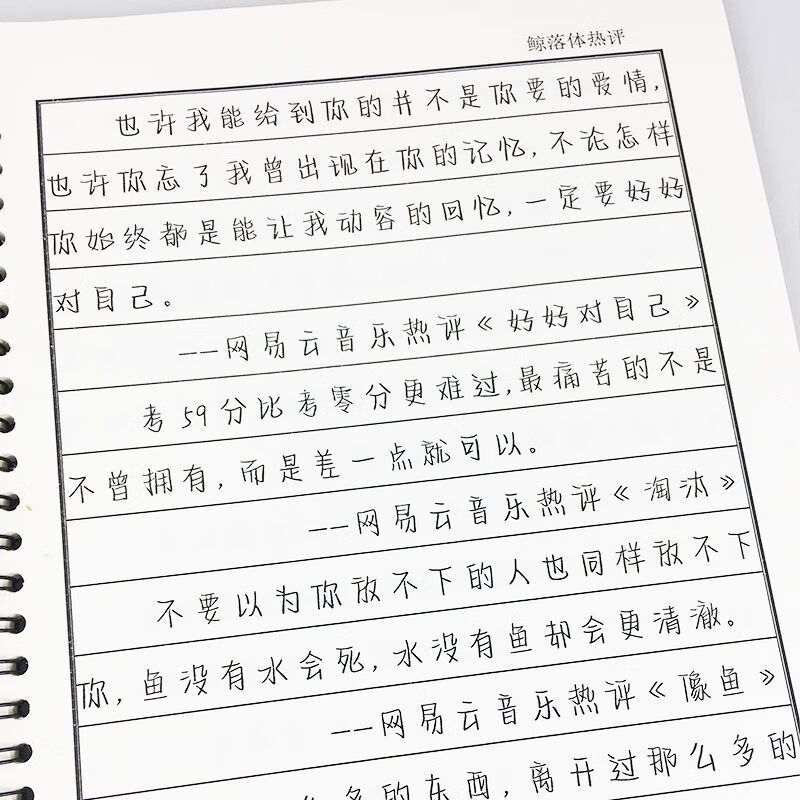 鲸落体热评
也许我能给到你的并不是你要的爱情,
也许你忘了我曾出现在你的记忆,不论怎样
你始终都是能让我动容的回忆,一定要好好
对自己。
--网易云音乐热评《好好对自己》
考59分比考零分更难过,最痛苦的不是
不曾拥有,而是差一点就可以。
--网易云音乐热评《淘汰》
不要以为你放不下的人也同样放不下
你,鱼没有水会死,水没有鱼却会更清澈。
--网易云音乐热评《像鱼》
多的东西,离开过那么多的